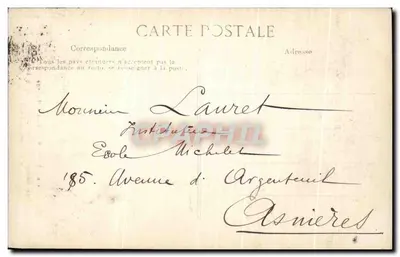 CARTE POSTALE
Correspondance
Adresse
Tous les pays étrangers n'acceptent pas la
correspondance au recto se renseigner à la poste.
Monsieur Lauret
Instituteur
Ecole Michelet
185. Avenue d'Argenteuil
Asnières